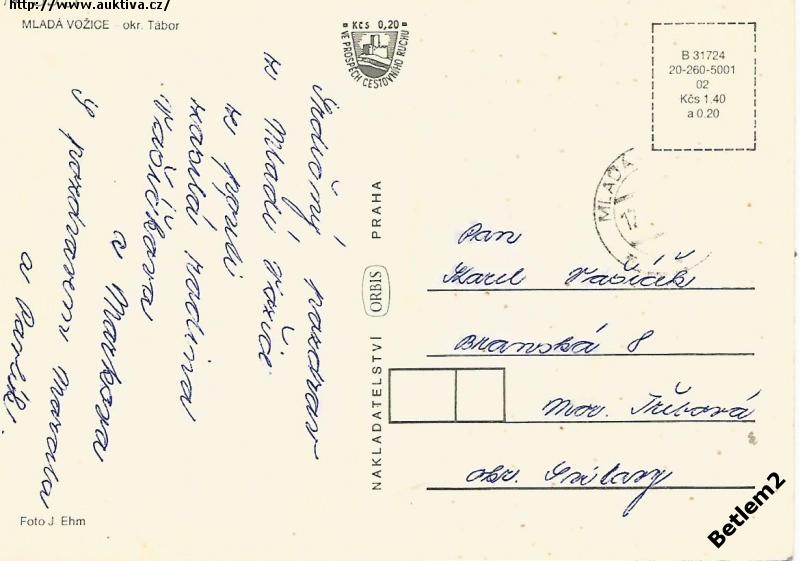 http://www.auktiva.cz/
MLADÁ VOŽICE – okr. Tábor
Kčs 0,20
VE PROSPĚCH CESTOVNÍHO RUCHU
B 31724
20-260-5001
02
Kčs 1.40
a 0.20
MLADÁ
Srdečný pozdrav
z Mladé Vožice
z pouti
zasílá rodina
Vašíčkova
a Markova
S pozdravem Marcela
a Pavel.
NAKLADATELSTVÍ ORBIS PRAHA
Pan
Karel Vašíček
Branská 8
Mor. Třebová
okr. Svitavy
Foto J. Ehm
Betlem2